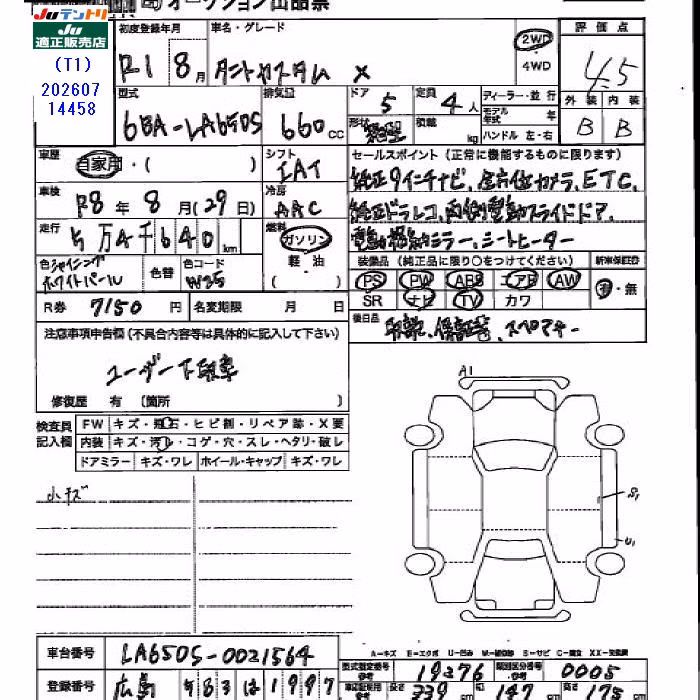 Juテントリ オークション出品票
Ju
適正販売店
(T1)
202607
14458
初度登録年月 車名・グレード 2WD 評価点
R1 8月 タントカスタム X 4WD 4.5
型式 排気量 ドア 定員 ディーラー・並行 外装 内装
6BA-LA650S 660cc 5 4人 モデル年式 年 B B
形状 積載 kg ハンドル 左・右
車歴 自家用・( ) シフト IAT セールスポイント(正常に機能するものに限ります)
純正9インチナビ、全方位カメラ、ETC、
車検 R8年8月(29日) 冷房 AAC 純正ドラレコ、両側電動スライドドア、
走行 万 千640km 燃料 ガソリン 軽・油 ( ) 電動格納ミラー、シートヒーター
色 シャイニングホワイトパール 色替 色コード W25 装備品(純正品に限り○をつけてください) 新車保証書
PS PW ABS エアB AW 有・無
R券 7150円 名変期限 月 日 SR ナビ TV カワ
後日品 取説、保証書、スペアキー
注意事項申告欄(不具合内容等は具体的に記入して下さい)
ユーザー下取車
修復歴 有 (箇所 )
検査員記入欄 FW キズ・飛石・ヒビ割・リペア跡・X要
内装 キズ・汚レ・コゲ・穴・スレ・ヘタリ・破レ
ドアミラー キズ・ワレ ホイール・キャップ キズ・ワレ
小キズ
A1
S1
U1
車台番号 LA650S-0021564
A-キズ E-エクボ U-凹み W-補修跡 S-サビ C-腐食 XX-交換済
型式指定番号 19276 類別区分番号 0005
登録番号 広島 583 は 1997 長さ 339cm 幅 147cm 高さ 175cm